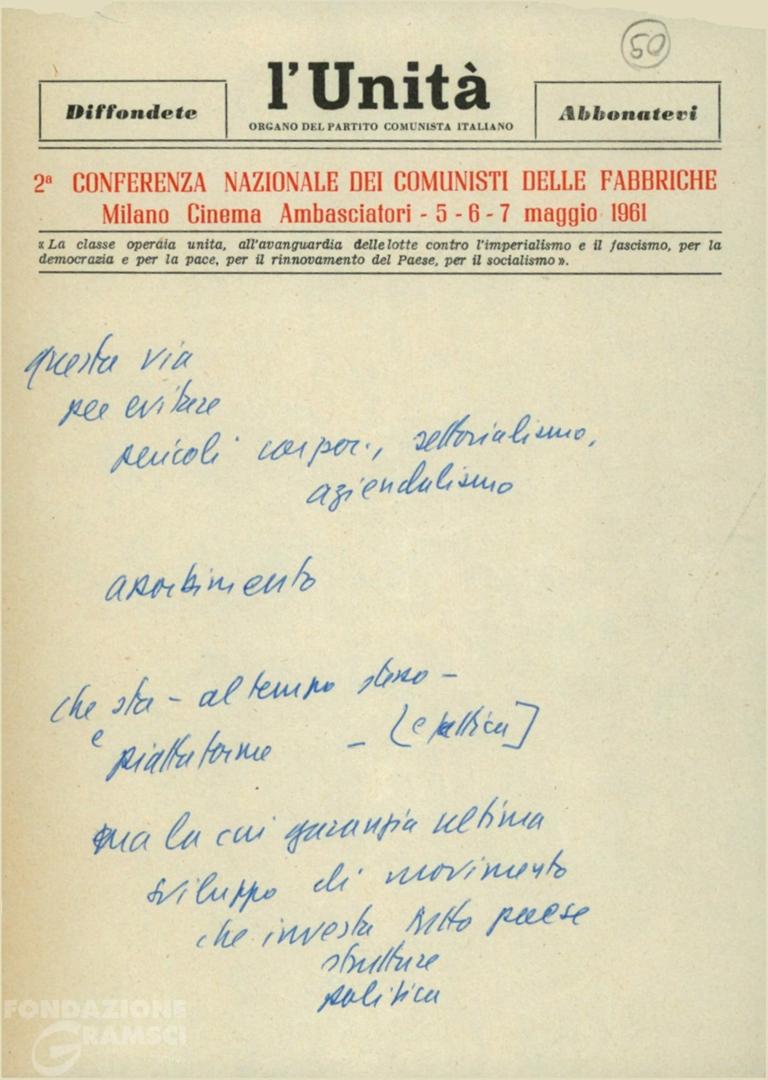 50
Diffondete
l'Unità
Abbonatevi
ORGANO DEL PARTITO COMUNISTA ITALIANO
2ª CONFERENZA NAZIONALE DEI COMUNISTI DELLE FABBRICHE
Milano Cinema Ambasciatori - 5 - 6 - 7 maggio 1961
« La classe operaia unita, all'avanguardia delle lotte contro l'imperialismo e il fascismo, per la
democrazia e per la pace, per il rinnovamento del Paese, per il socialismo ».
questa via
per evitare
pericoli corpor., settorialismo,
aziendalismo
assorbimento
che sta - al tempo stesso -
e
piattaforme - [e
ma la cui garanzia ultima
sviluppo di movimento
che investa tutto paese
strutture
politica
FONDAZIONE
GRAMSCI